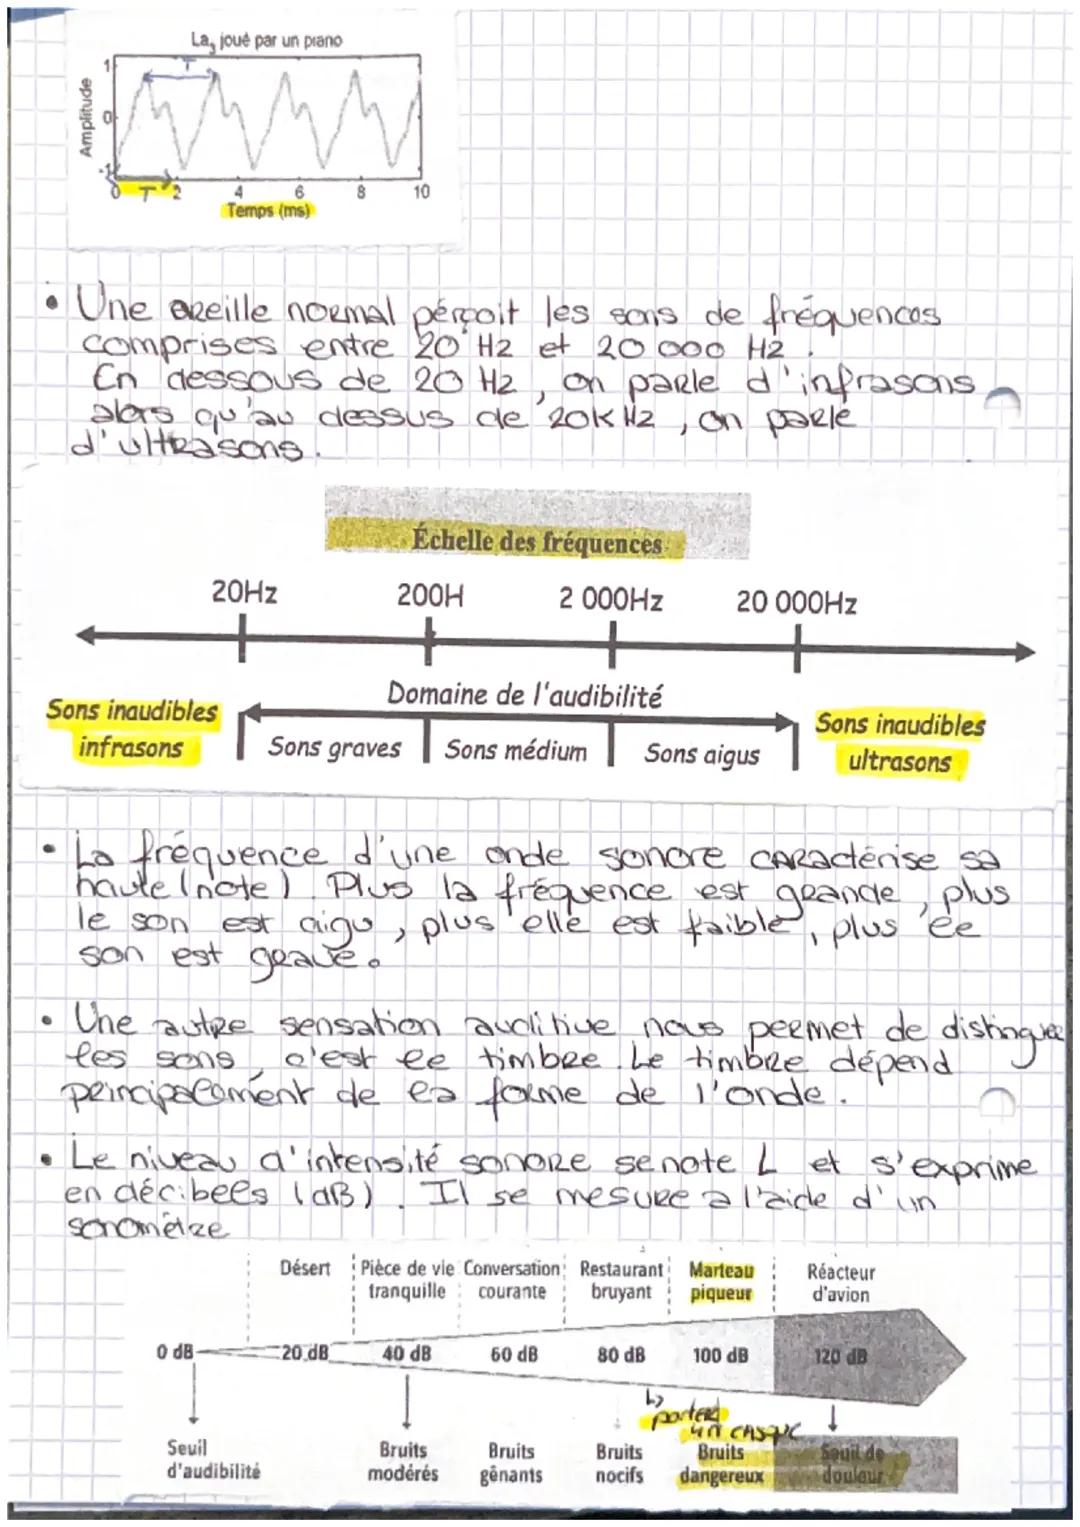 La₃ joué par un piano
T
Amplitude
1
0
-1
0 T 2 4 6 8 10
Temps (ms)
• Une oreille normal pérçoit les sons de fréquences
comprises entre 20 Hz et 20 000 Hz.
En dessous de 20 Hz, on parle d'infrasons
alors qu'au dessus de 20KHz, on parle
d'ultrasons.
Échelle des fréquences
20Hz 200H 2 000Hz 20 000Hz
Domaine de l'audibilité
Sons inaudibles infrasons
Sons graves Sons médium Sons aigus
Sons inaudibles ultrasons
• La fréquence d'une onde sonore caractérise sa
haute (note). Plus la fréquence est grande, plus
le son est aigu, plus elle est faible, plus le
son est grave.
• Une autre sensation auditive nous permet de distinguer
les sons, c'est le timbre. Le timbre dépend
principalement de la forme de l'onde.
• Le niveau d'intensité sonore se note L et s'exprime
en décibels (dB). Il se mesure a l'aide d'un
sonomètre
Désert Pièce de vie Conversation Restaurant Marteau Réacteur
tranquille courante bruyant piqueur d'avion
0 dB 20 dB 40 dB 60 dB 80 dB 100 dB 120 dB
↳ porter
un casque
Seuil Bruits Bruits Bruits Bruits Seuil de
d'audibilité modérés gênants nocifs dangereux douleur